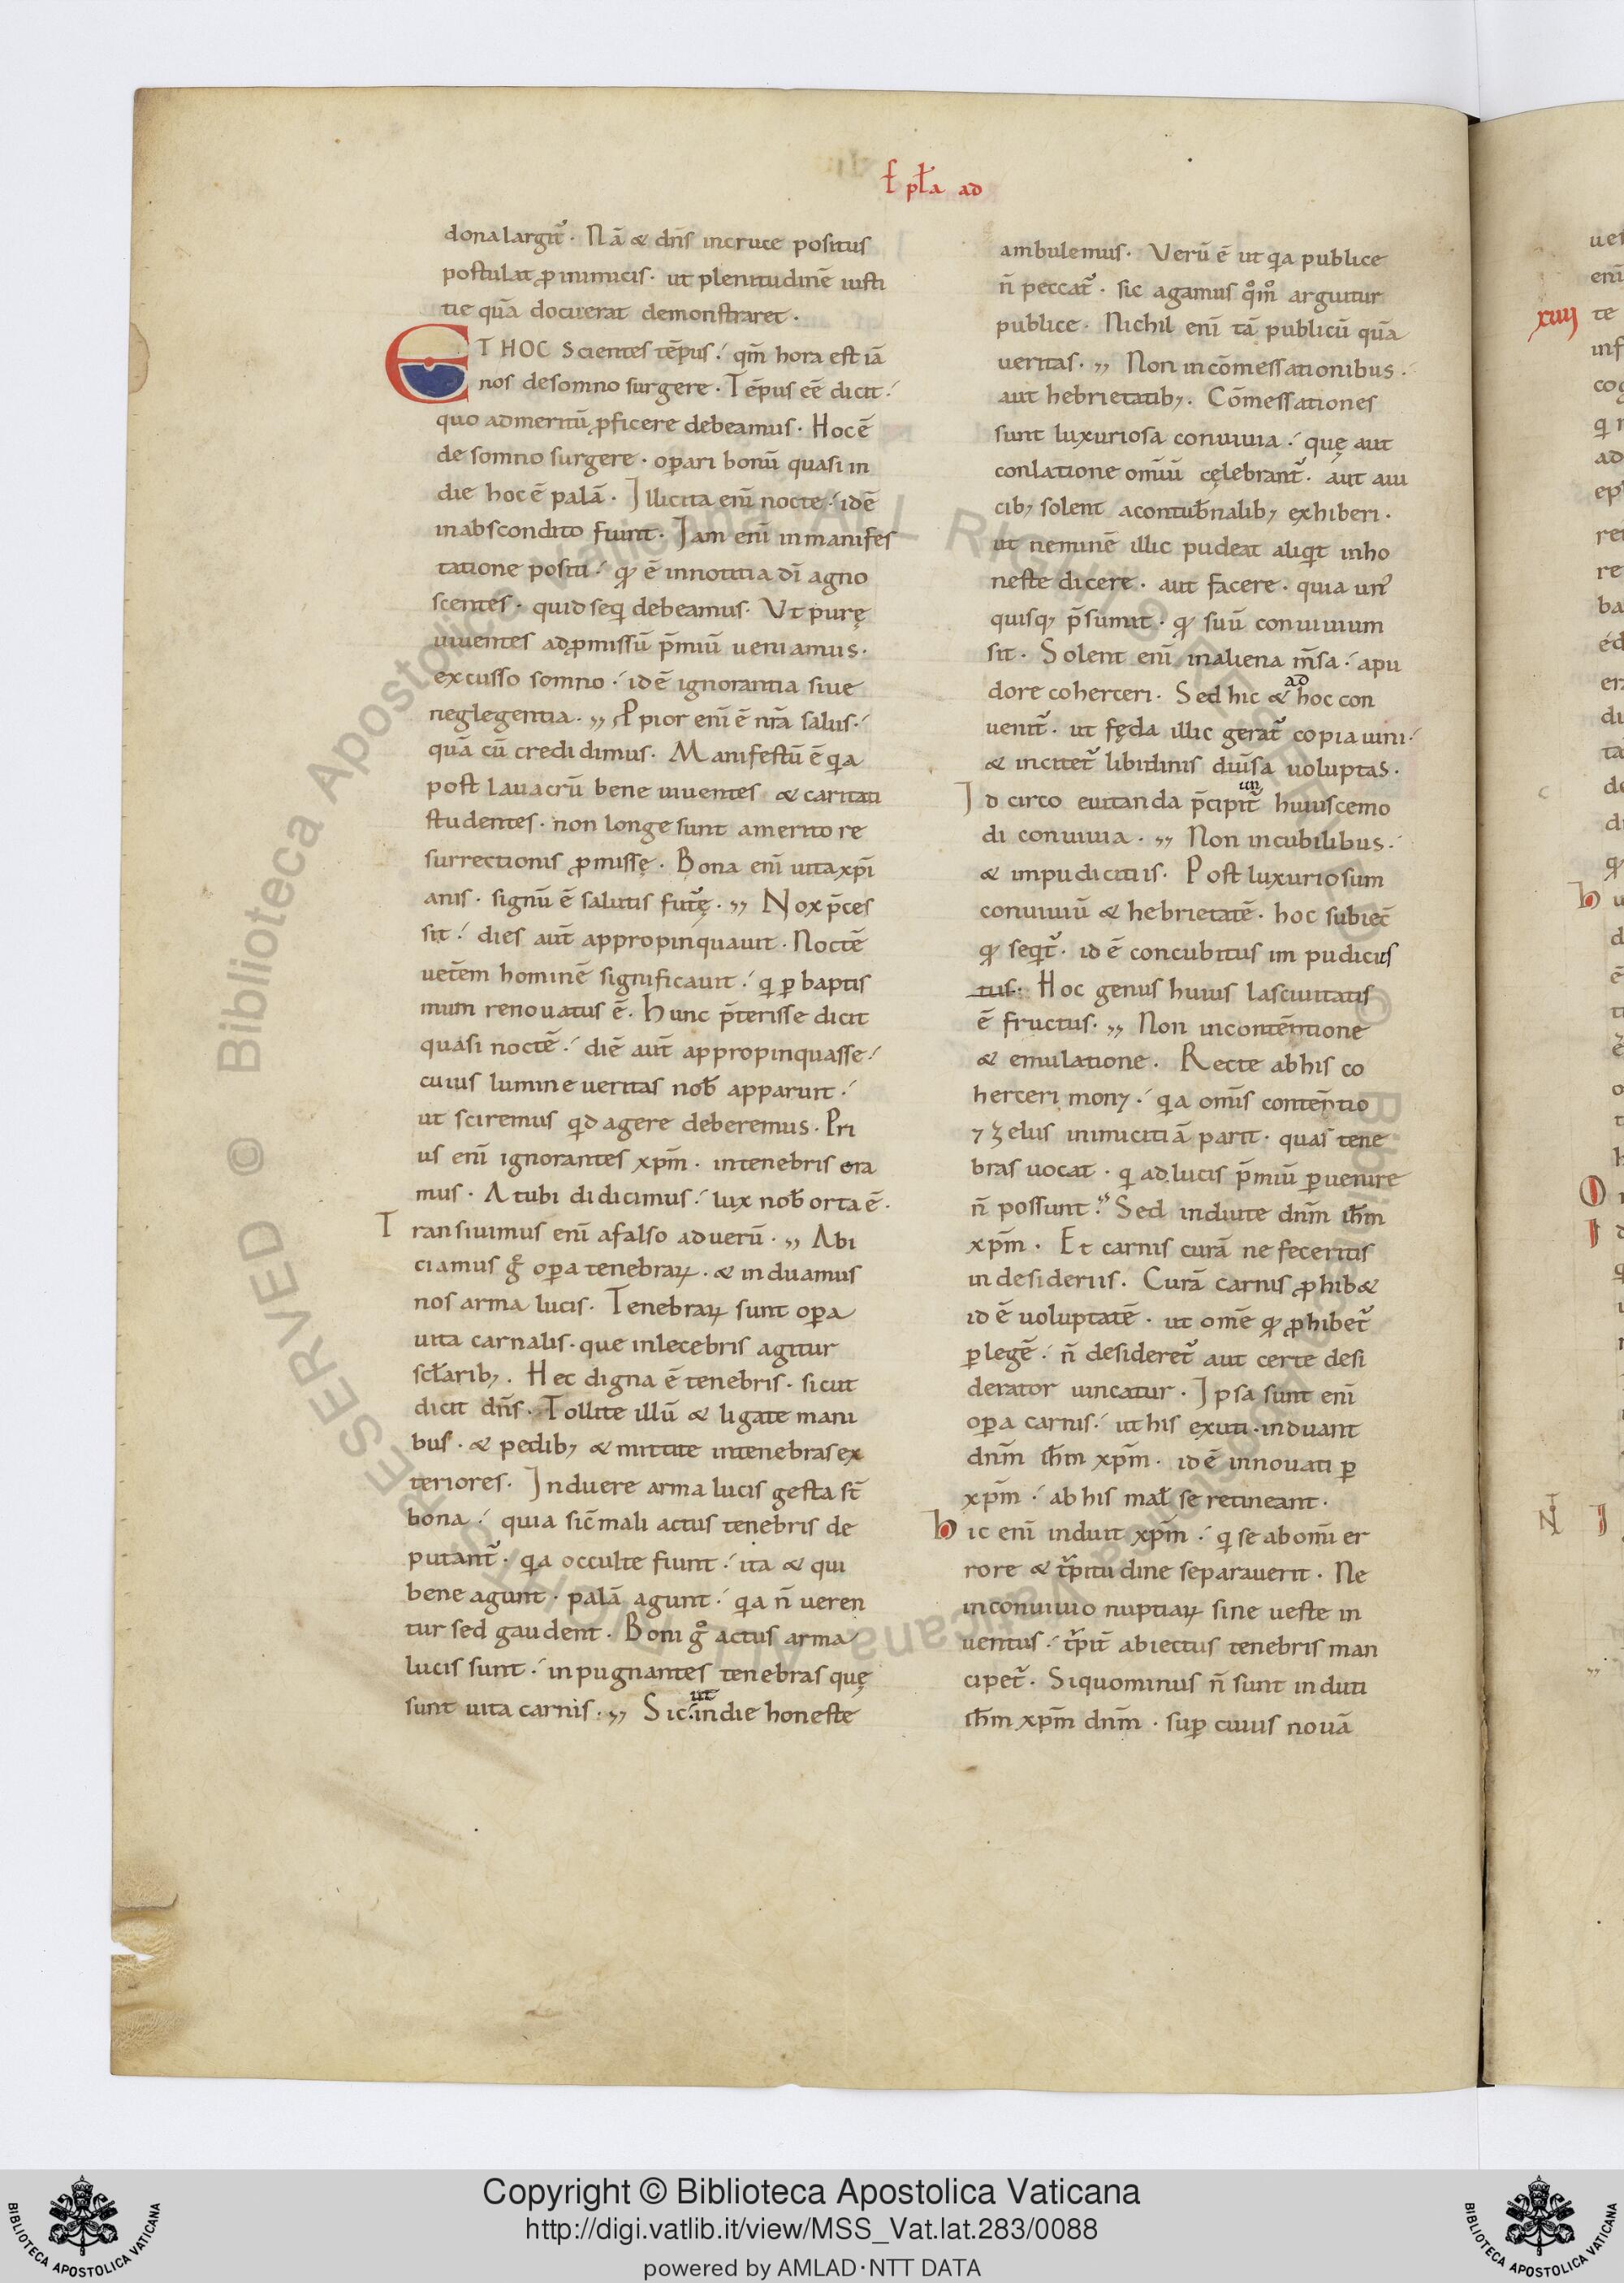 Epła ad
dona largit᷑. Nā & dn̄s in cruce positus
postulat ꝓ inimicis. ut plenitudinē iusti
tie quā docuerat demonstraret.
ET HOC Scientes tēpus. qm̄ hora est iā
nos de somno surgere. Tēpus eē dicit.
quo ad meritū ꝓficere debeamus. Hoc ē
de somno surgere. oꝑari bonū quasi in
die hoc ē palā. Illicita enī nocte. id ē
in abscondito fiunt. Iam enī in manifes
tatione positi. qđ ē in notitia dī agno
scentes. quid seq̇ debeamus. Ut purę
uiuentes ad ꝓmissū p̄miū ueniamus.
excusso somno. id ē ignorantia siue
neglegentia. ,, Ppior enī ē nr̄a salus.
quā cū credidimus. Manifestū ē qa
post lauacrū bene uiuentes & caritati
studentes. non longe sunt a merito re
surrectionis ꝓmissę. Bona enī uita xp̄i
anis. signū ē salutis fut᷑ę. ,, Nox p̄ces
sit. dies aut̄ appropinquauit. Noctē
uet̄em hominē significauit. q ꝑ baptis
mum renouatus ē. Hunc p̄terisse dicit
quasi noctē. diē aut̄ appropinquasse.
cuius lumine ueritas nob̄ apparuit.
ut sciremus qd agere deberemus. Pri
us enī ignorantes xpm̄. in tenebris era
mus. At ubi didicimus. lux nob̄ orta ē.
Transiuimus enī a falso ad uerū. ,, Abi
ciamus gͦ oꝑa tenebraꝝ. & induamus
nos arma lucis. Tenebraꝝ sunt oꝑa
uita carnalis. que inlecebris agitur
scłarib;. Hec digna ē tenebris. sicut
dicit dn̄s. Tollite illū & ligate mani
bus. & pedib; & mittite in tenebras ex
teriores. Induere arma lucis gesta st̄
bona. quia sic̄ mali actus tenebris de
putant᷑. qa occulte fiunt. ita & qui
bene agunt. palā agunt. qa n̄ ueren
tur sed gaudent. Boni gͦ actus arma
lucis sunt. inpugnantes tenebras quę
sunt uita carnis. ,, Sic ut in die honeste
ambulemus. Verū ē ut qa publice
n̄ peccat᷑. sic agamus qͦmͦ arguitur
publice. Nichil enī tā publicū quā
ueritas. ,, Non in cōmessationibus.
aut hebrietatib;. Cōmessationes
sunt luxuriosa conuiuia. quę aut
conlatione omīū cęlebrant᷑. aut aui
cib; solent a contub̄nalib; exhiberi.
ut neminē illic pudeat aliqt inho
neste dicere. aut facere. quia un᷒
quisq; p̄sumit. qđ suū conuiuium
sit. Solent enī in aliena m̄sa. apu
dore coherceri. Sed hic & ad hoc con
uenit᷑. ut fęda illic gerat᷑ copia uini.
& incitet᷑ libidinis diūsa uoluptas.
Id circo euitanda p̄cipiun t᷑ huiuscemo
di conuiuia. ,, Non in cubilibus.
& impudicitiis. Post luxuriosum
conuiuiū & hebrietatē. hoc subiec̄
qđ seqt᷑. id ē concubitus impudicus
tus. Hoc genus huius lasciuitatis
ē fructus. ,, Non in contēntione
& emulatione. Recte ab his co
herceri mon; . qa omīs contēntio
⁊ zelus inimicitiā parit. quas tene
bras uocat. q ad lucis p̄miū ꝑuenire
n̄ possunt. ,, Sed induite dnm̄ ihm̄
xpm̄. Et carnis curā ne feceritis
in desideriis. Curā carnis ꝓhib&
id ē uoluptatē. ut omē qđ ꝓhibet᷑
ꝑ legē. n̄ desideret᷑ aut certe desi
derator uincatur. Ipsa sunt enī
oꝑa carnis. ut his exuti. induant
dnm̄ ihm̄ xpm̄. id ē innouati ꝑ
xpm̄. ab his mał se retineant.
hic enī induit xpm̄. q se ab omī er
rore & t᷑pitudine separauerit. Ne
in conuiuio nuptiaꝝ sine ueste in
uentus. t᷑pit̄ abiectus tenebris man
cipet᷑. Siquominus n̄ sunt induti
ihm̄ xpm̄ dnm̄. suꝑ cuius nouā
xiiij
Copyright © Biblioteca Apostolica Vaticana
http://digi.vatlib.it/view/MSS_Vat.lat.283/0088
powered by AMLAD·NTT DATA
BIBLIOTECA APOSTOLICA VATICANA
BIBLIOTECA APOSTOLICA VATICANA